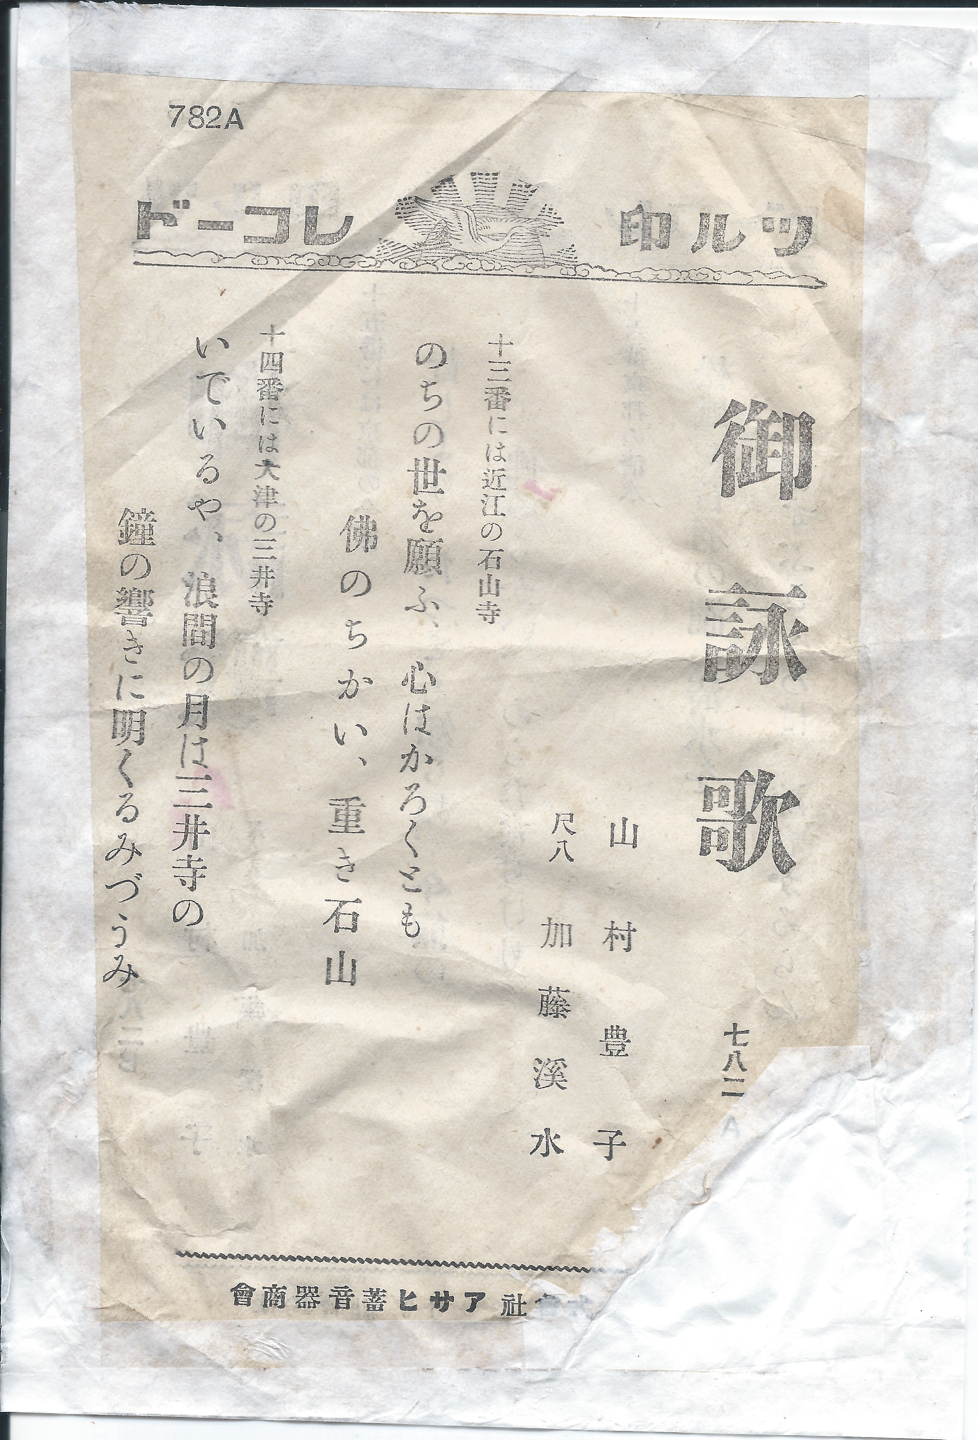 782A
ツル印 レコード
御詠歌
七八二A
山村豊子
尺八 加藤溪水
十三番には近江の石山寺
のちの世を願ふ、心はかろくとも
佛のちかい、重き石山
十四番には大津の三井寺
いでいるや、浪間の月は三井寺の
鐘の響きに明くるみづうみ
社アサヒ蓄音器商會